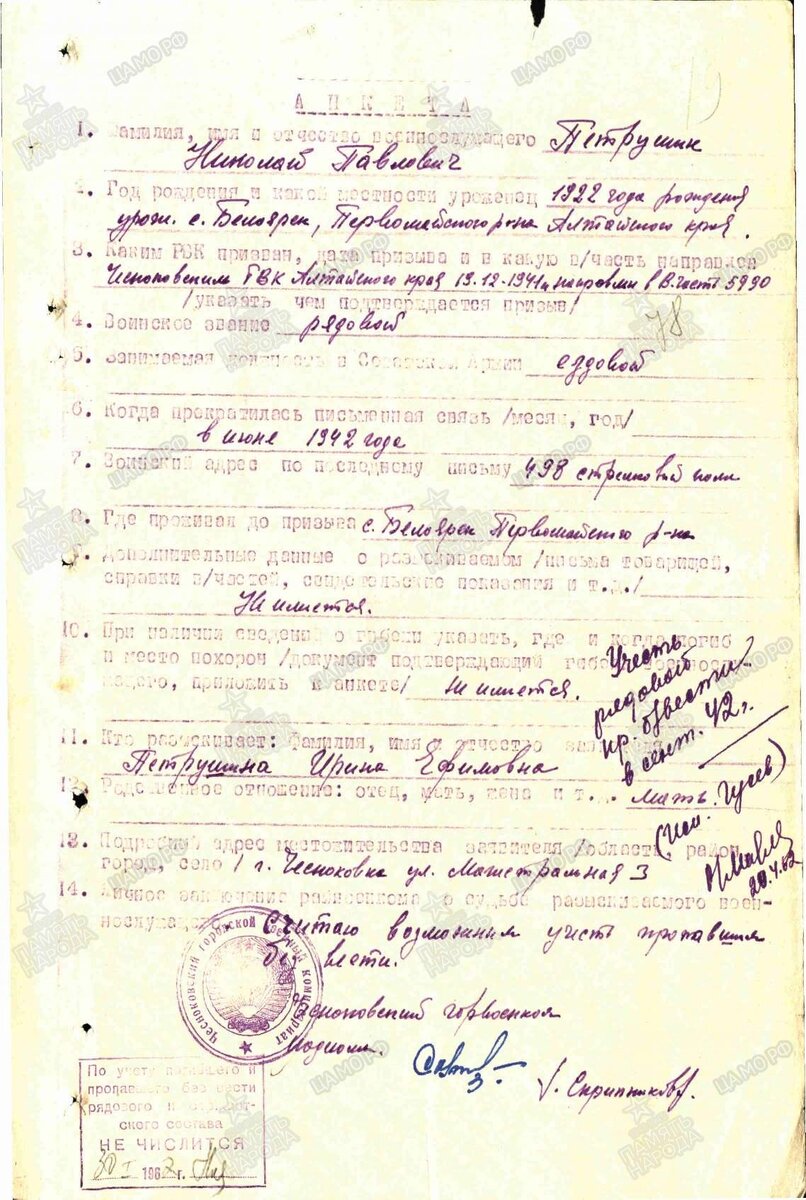 АНКЕТА
1. Фамилия, имя и отчество военнослужащего Петрушин
Николай Павлович
2. Год рождения и какой местности уроженец 1922 года рождения
урож. с. Белоярск, Первомайского р-на Алтайского края.
3. Каким РВК призван, дата призыва и в какую в/часть направлен
Чесноковским ГВК Алтайского края 19.12-1941г направлен в В.часть 5990
/указать чем подтверждается призыв/
78
4. Воинское звание рядовой
5. Занимаемая должность в Советской Армии ездовой
6. Когда прекратилась письменная связь /месяц, год/
в июне 1942 года
7. Воинский адрес по последнему письму 498 стрелковый полк
8. Где проживал до призыва с. Белоярск Первомайского р-на
9. Дополнительные данные о разыскиваемом /письма товарищей,
справки в/частей, свидетельские показания и т.д./
Не имеется.
10. При наличии сведений о гибели указать, где и когда погиб
и место похорон /документ подтверждающий гибель военнослу-
жащего, приложить к анкете/ Не имеется.
Учесть
рядовой
пр. б/вести
в сент. 42 г.
(исп. Гусев)
20.4.62
11. Кто разыскивает: фамилия, имя и отчество заявителя
Петрушина Ирина Ефимовна
12. Родственное отношение: отец, мать, жена и т. мать.
13. Подробный адрес местожительства заявителя /область, район,
город, село/ г. Чесноковка ул. Магистральная 3
14. Личное заключение райвоенкома о судьбе разыскиваемого воен-
нослужащего Считаю возможным учесть пропавшим
без вести.
Чесноковский городской военный комиссариат
Чесноковский горвоенком
/. Скрипников/.
По учету погибшего и
пропавшего без вести
рядового и сержант-
ского состава
НЕ ЧИСЛИТСЯ
30 I 1962 г.
ПАМЯТЬ НАРОДА
ЦАМО РФ